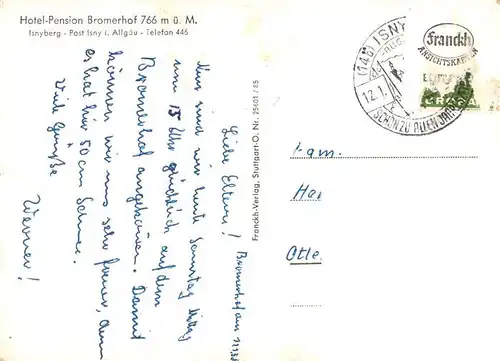 Hotel-Pension Bromerhof 766 m ü. M.
Isnyberg - Post Isny i. Allgäu - Telefon 446
Bromerhof am
Liebe Eltern!
Nun sind wir heute Sonntag Mittag
um 15 Uhr glücklich auf dem
Bromerhof angekommen. Damit
können wir uns sehr freuen, denn
es hat hier 50 cm Schnee.
Viele Grüße
Werner!
Franckh-Verlag, Stuttgart-O, Nr. 25601/65
(14b) ISNY
12.1.
SCHÖN ZU ALLEN JAHRES
Franckh
ANSICHTSKARTEN
Fam.
Her
Otle.